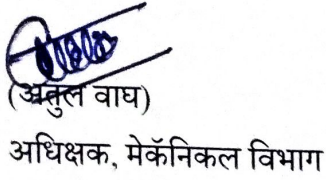 (अतुल वाघ)
अधिक्षक, मेकॅनिकल विभाग